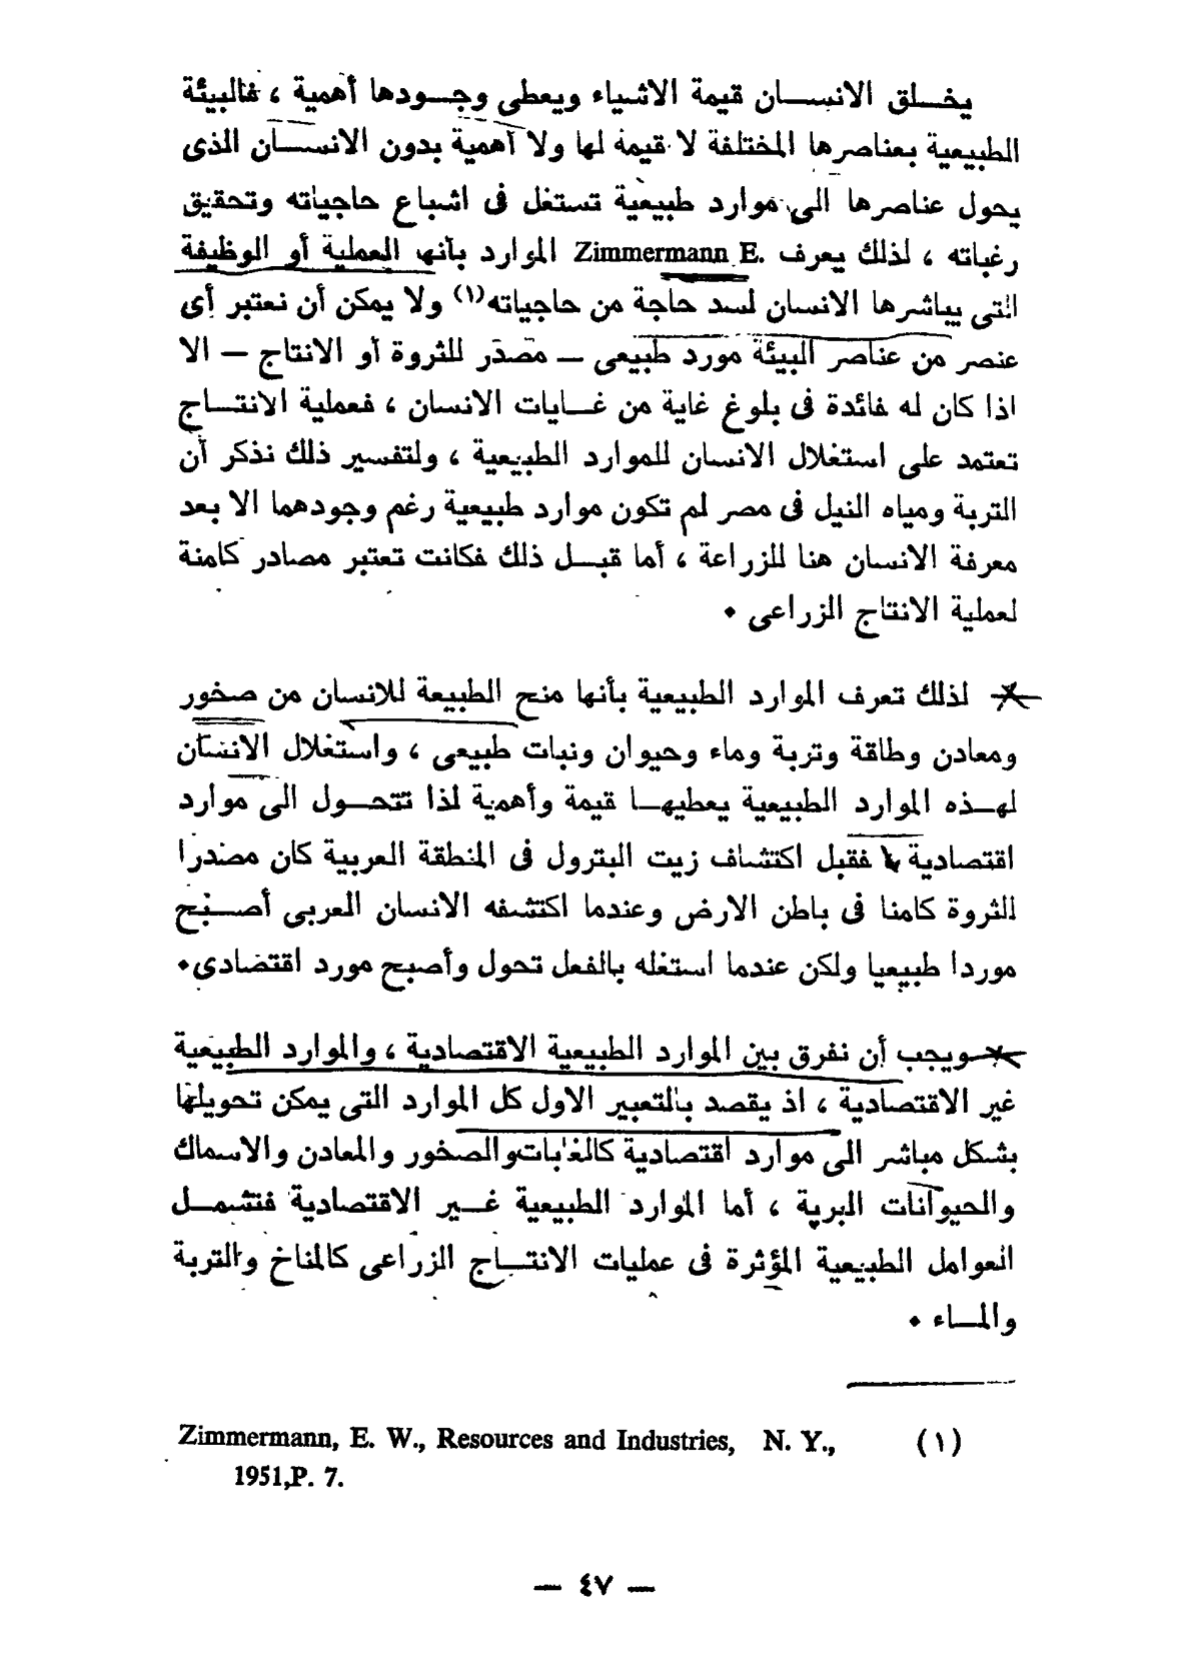 يخلق الانسان قيمة الاشياء ويعطى وجودها أهمية ، فالبيئة
الطبيعية بعناصرها المختلفة لا قيمة لها ولا أهمية بدون الانسان الذى
يحول عناصرها الى موارد طبيعية تستغل فى اشباع حاجياته وتحقيق
رغباته ، لذلك يعرف Zimmermann E. الموارد بأنها العملية أو الوظيفة
التى يباشرها الانسان لسد حاجة من حاجياته(١) ولا يمكن أن نعتبر أى
عنصر من عناصر البيئة مورد طبيعى — مصدر للثروة أو الانتاج — الا
اذا كان له فائدة فى بلوغ غاية من غايات الانسان ، فعملية الانتاج
تعتمد على استغلال الانسان للموارد الطبيعية ، ولتفسير ذلك نذكر أن
التربة ومياه النيل فى مصر لم تكون موارد طبيعية رغم وجودهما الا بعد
معرفة الانسان هنا للزراعة ، أما قبل ذلك فكانت تعتبر مصادر كامنة
لعملية الانتاج الزراعى .
لذلك تعرف الموارد الطبيعية بأنها منح الطبيعة للانسان من صخور
ومعادن وطاقة وتربة وماء وحيوان ونبات طبيعى ، واستغلال الانسان
لهذه الموارد الطبيعية يعطيها قيمة وأهمية لذا تتحول الى موارد
اقتصادية ، فقبل اكتشاف زيت البترول فى المنطقة العربية كان مصدرا
للثروة كامنا فى باطن الارض وعندما اكتشفه الانسان العربى أصبح
موردا طبيعيا ولكن عندما استغله بالفعل تحول وأصبح مورد اقتصادى.
ويجب أن نفرق بين الموارد الطبيعية الاقتصادية ، والموارد الطبيعية
غير الاقتصادية ، اذ يقصد بالتعبير الاول كل الموارد التى يمكن تحويلها
بشكل مباشر الى موارد اقتصادية كالغابات والصخور والمعادن والاسماك
والحيوانات البرية ، أما الموارد الطبيعية غير الاقتصادية فتشمل
العوامل الطبيعية المؤثرة فى عمليات الانتاج الزراعى كالمناخ والتربة
والماء .
(١) Zimmermann, E. W., Resources and Industries, N. Y.,
1951,P. 7.
— ٤٧ —